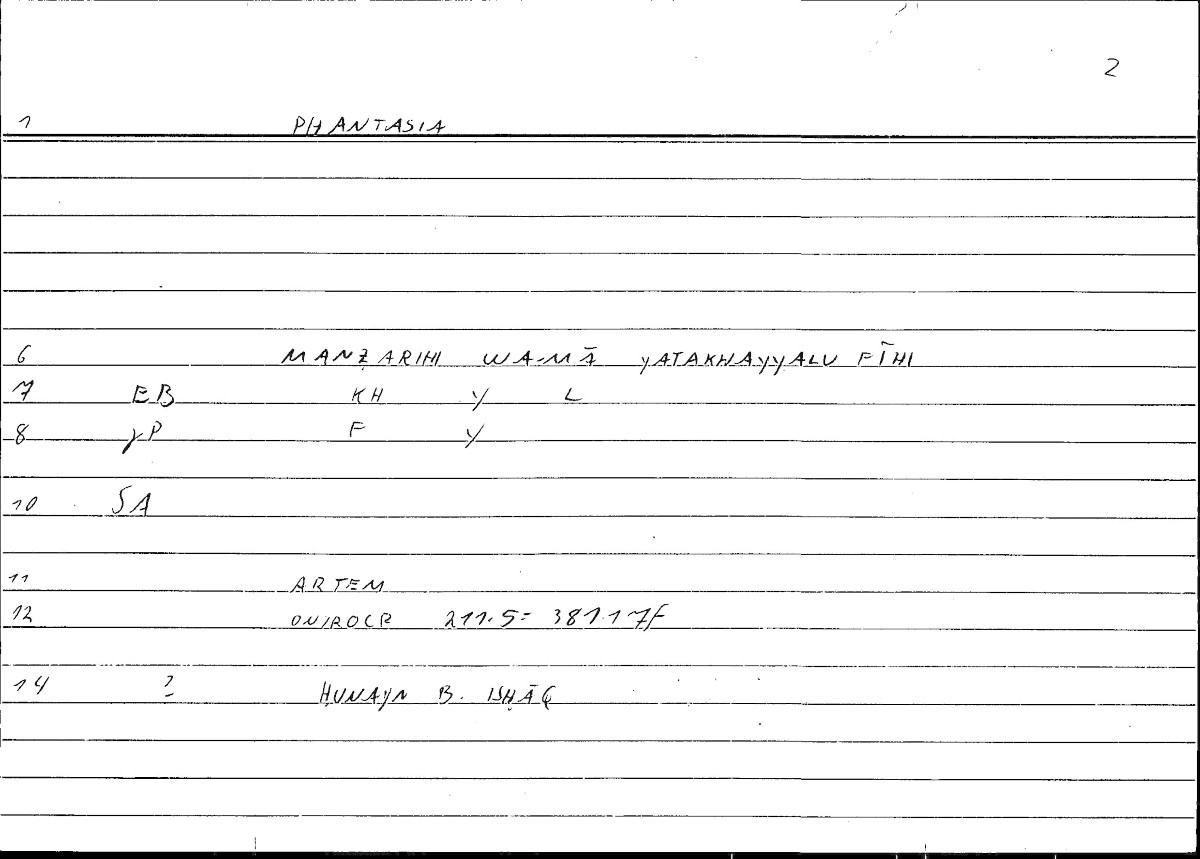 2
1 PHANTASIA
6 MANẒARIHI WA-MĀ YATAKHAYYALU FĪHI
7 EB KH Y L
8 γP F Y
10 SA
11 ARTEM
12 ONIROCR 211.5 = 381.17f
14 ? ḤUNAYN B. ISḤĀQ